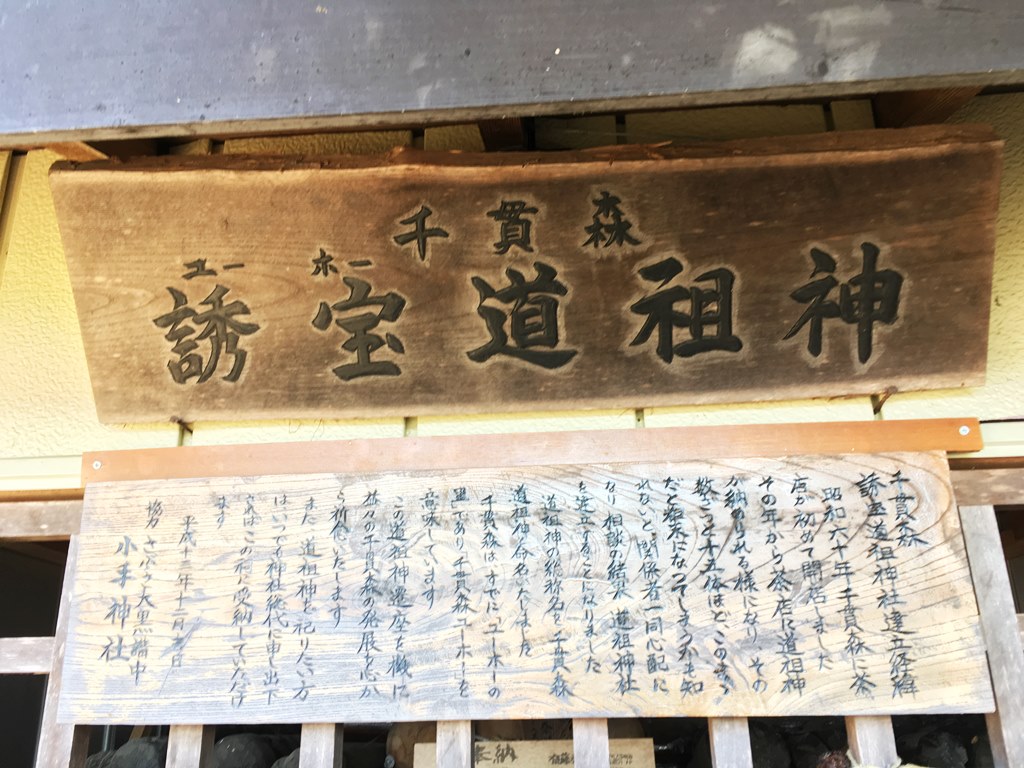 千貫森
ユー ホー
誘宝道祖神
千貫森
誘宝道祖神社建立経緯
昭和六十年千貫森に茶
店が初めて開店しました
その年から茶店に道祖神
が納められる様になり、その
数ざっと十五体ほど、このまゝ
だと粗末になってしまうかも知
れないと、関係者一同心配に
なり、相談の結果、道祖神社
を建立することになりました
道祖神の総称名を千貫森
道祖神と命名いたしました
千貫森はすでに「ユーホーの
里」であり、千貫森ユーホーを
意味しています
この道祖神遷座を機に
益々の千貫森の発展を心か
ら祈念いたします
また、道祖神を祀りたい方
はいつでも神社総代に申し出下
さればこの祠に受納していただけ
ます
平成十三年十二月 日
協力
小手神社
奉納